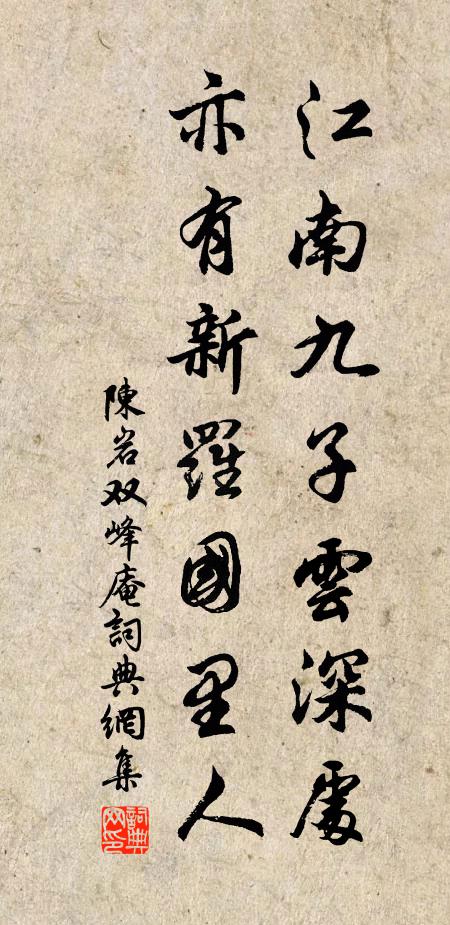 江南九子雲深處
亦有新羅國里人
陳岩双峰庵詞典網集
詞典网印